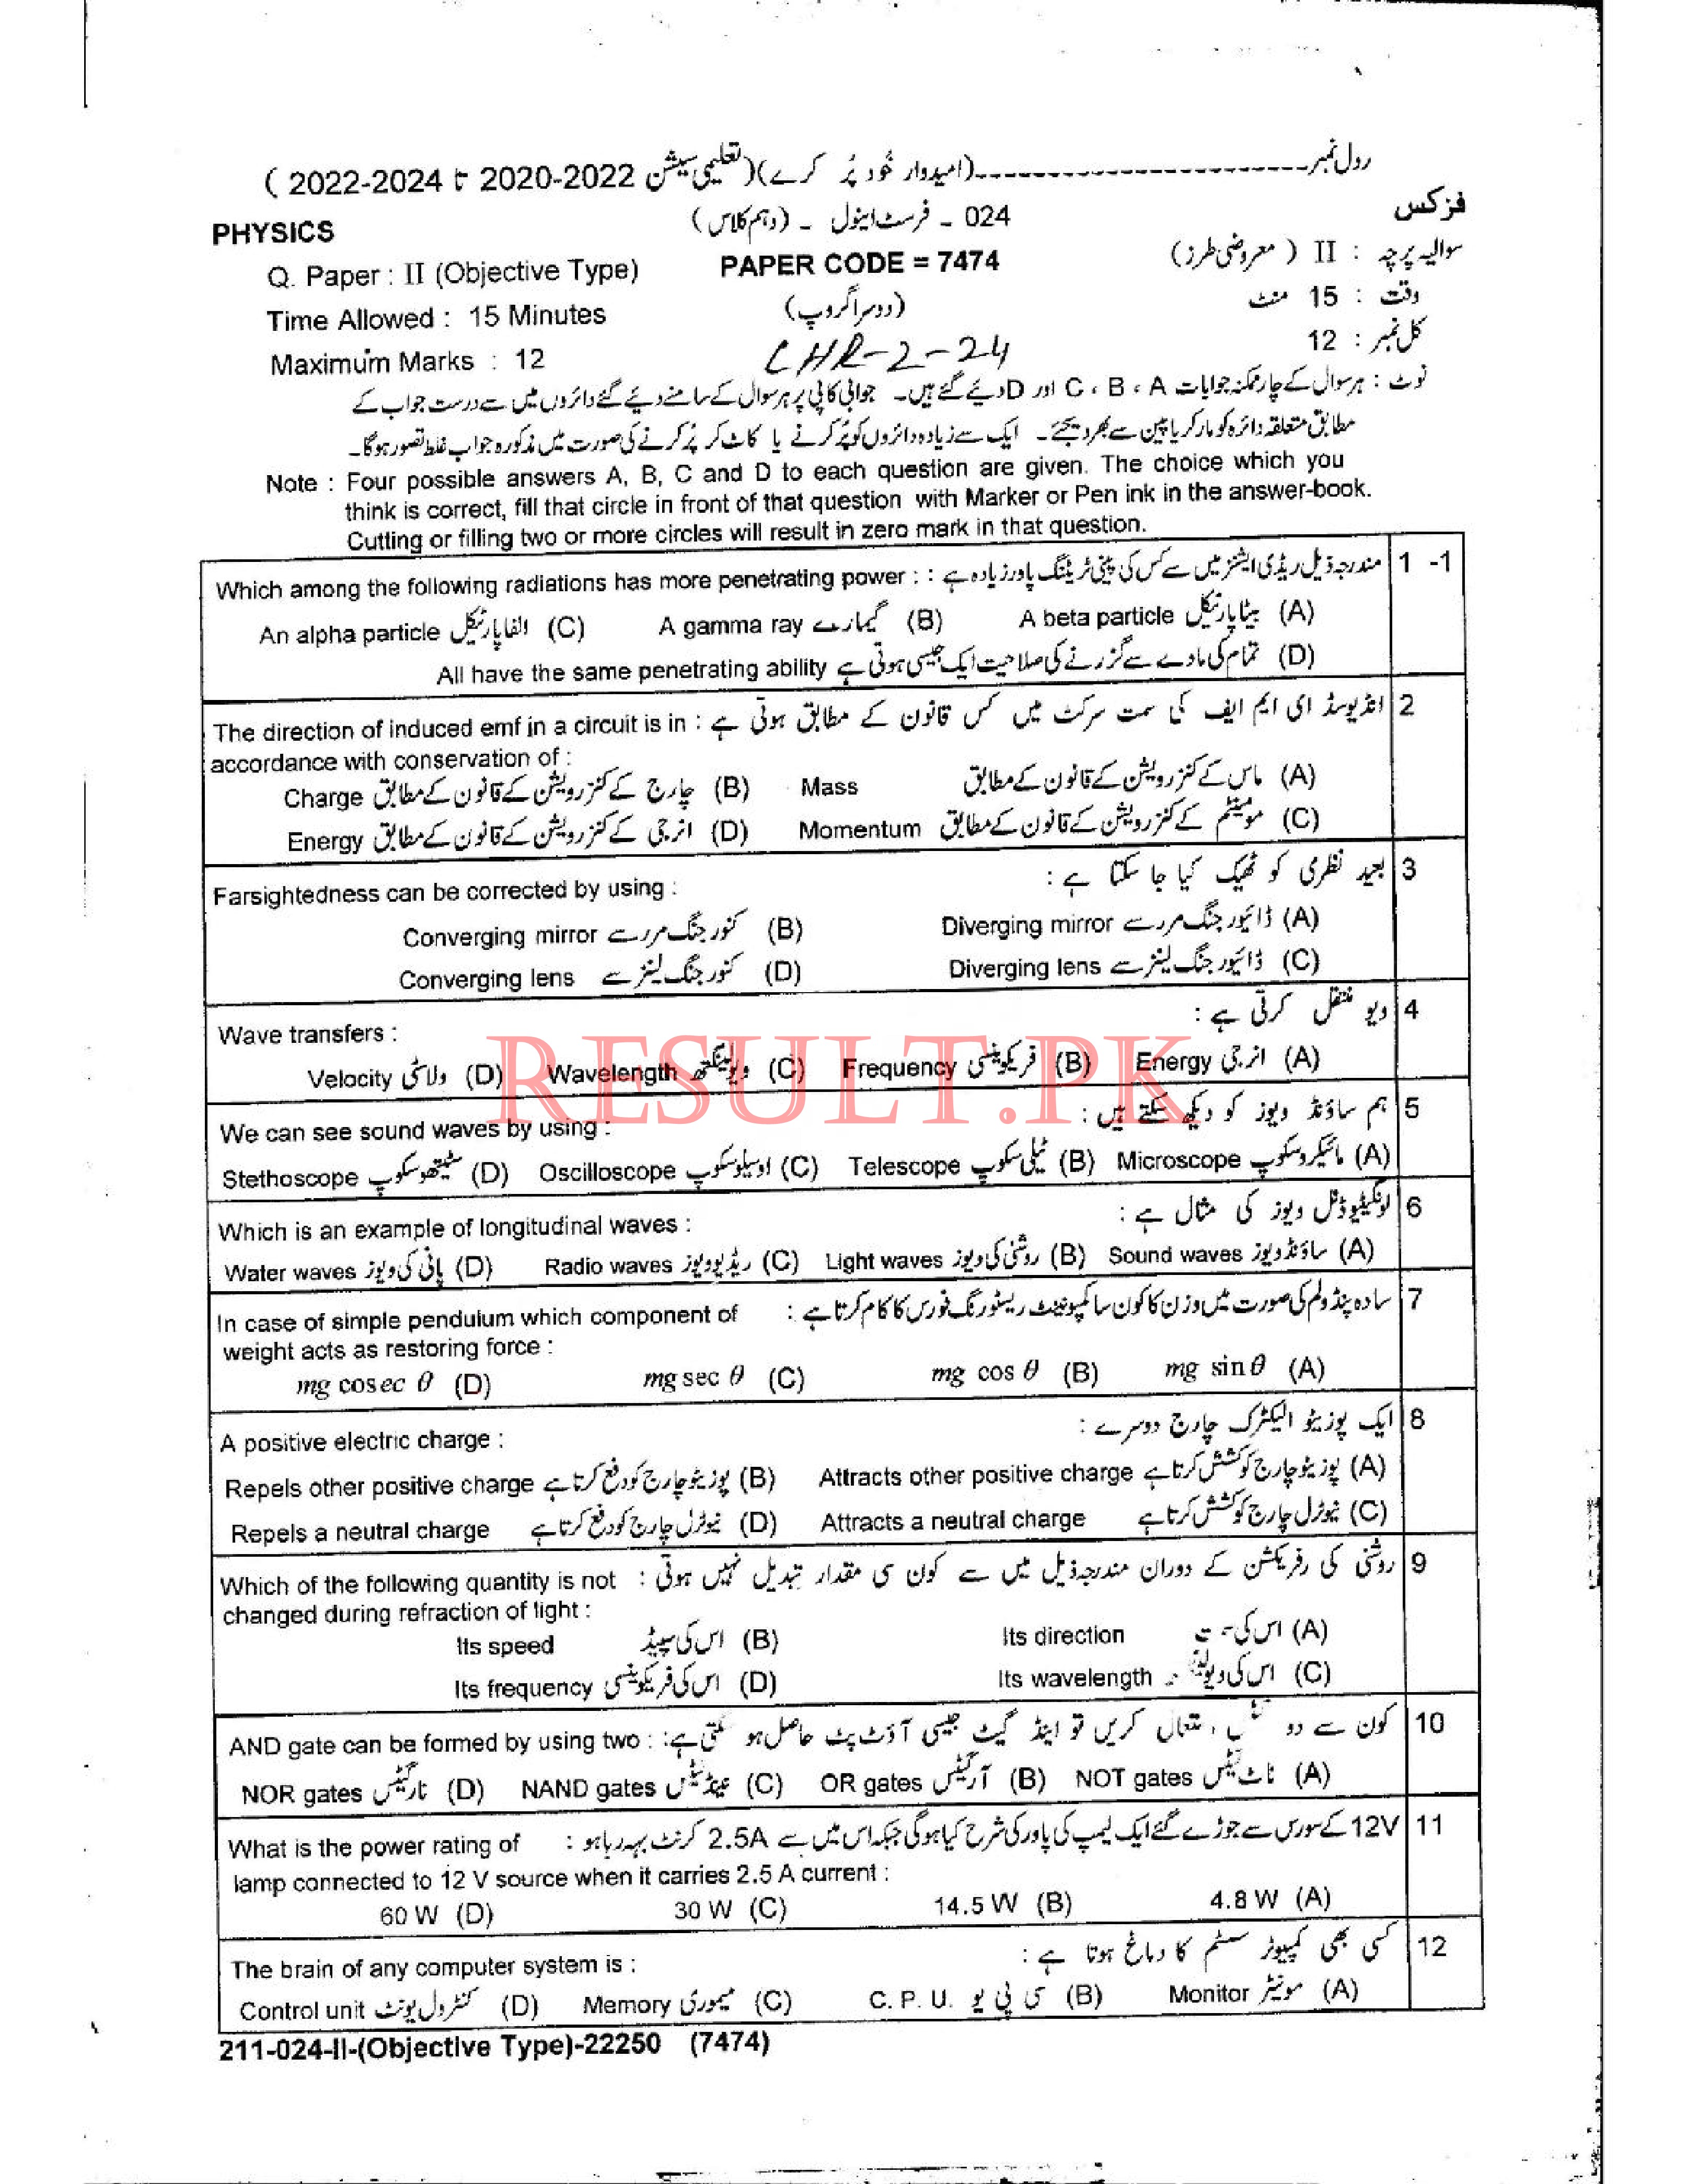 رول نمبر------------------------(امیدوار خود پُر کرے)(تعلیمی سیشن 2022-2020 تا 2024-2022 )
PHYSICS 024 - فرسٹ اینول - (دہم کلاس) فزکس
Q. Paper : II (Objective Type) PAPER CODE = 7474 سوالیہ پرچہ : II ( معروضی طرز)
Time Allowed : 15 Minutes (دوسرا گروپ) وقت : 15 منٹ
Maximum Marks : 12 LHR-2-24 کل نمبر : 12
نوٹ : ہر سوال کے چار ممکنہ جوابات A ، B ، C اور D دیئے گئے ہیں۔ جوابی کاپی پر ہر سوال کے سامنے دیئے گئے دائروں میں سے درست جواب کے
مطابق متعلقہ دائرہ کو مارکر یا پین سے بھر دیجئے۔ ایک سے زیادہ دائروں کو پُر کرنے یا کاٹ کر پُر کرنے کی صورت میں مذکورہ جواب غلط تصور ہوگا۔
Note : Four possible answers A, B, C and D to each question are given. The choice which you
think is correct, fill that circle in front of that question with Marker or Pen ink in the answer-book.
Cutting or filling two or more circles will result in zero mark in that question.
1 -1 مندرجہ ذیل ریڈی ایشنز میں سے کس کی پینی ٹریٹنگ پاور زیادہ ہے : Which among the following radiations has more penetrating power :
(A) بیٹا پارٹیکل A beta particle (B) گیمارے A gamma ray (C) الفا پارٹیکل An alpha particle
(D) تمام کی مادے سے گزرنے کی صلاحیت ایک جیسی ہوتی ہے All have the same penetrating ability
2 انڈیوسڈ ای ایم ایف کی سمت سرکٹ میں کس قانون کے مطابق ہوتی ہے : The direction of induced emf in a circuit is in
accordance with conservation of :
(A) ماس کے کنزرویشن کے قانون کے مطابق Mass (B) چارج کے کنزرویشن کے قانون کے مطابق Charge
(C) مومینٹم کے کنزرویشن کے قانون کے مطابق Momentum (D) انرجی کے کنزرویشن کے قانون کے مطابق Energy
3 بعید نظری کو ٹھیک کیا جا سکتا ہے : Farsightedness can be corrected by using :
(A) ڈائیورجنگ مررسے Diverging mirror (B) کنورجنگ مررسے Converging mirror
(C) ڈائیورجنگ لینزسے Diverging lens (D) کنورجنگ لینزسے Converging lens
4 ویو منتقل کرتی ہے : Wave transfers :
(A) انرجی Energy (B) فریکوئنسی Frequency (C) ویولینگتھ Wavelength (D) ولاسٹی Velocity
RESULT.PK
5 ہم ساؤنڈ ویوز کو دیکھ سکتے ہیں : We can see sound waves by using :
(A) مائیکروسکوپ Microscope (B) ٹیلی سکوپ Telescope (C) اوسیلوسکوپ Oscilloscope (D) سٹیتھوسکوپ Stethoscope
6 لونگیٹیوڈنل ویوز کی مثال ہے : Which is an example of longitudinal waves :
(A) ساؤنڈویوز Sound waves (B) روشنی کی ویوز Light waves (C) ریڈیوویوز Radio waves (D) پانی کی ویوز Water waves
7 سادہ پنڈولم کی صورت میں وزن کا کون سا کمپونینٹ ریسٹورنگ فورس کا کام کرتا ہے : In case of simple pendulum which component of
weight acts as restoring force :
(A) mg sin θ (B) mg cos θ (C) mg sec θ (D) mg cosec θ
8 ایک پوزیٹو الیکٹرک چارج دوسرے : A positive electric charge :
(A) پوزیٹو چارج کو کشش کرتا ہے Attracts other positive charge (B) پوزیٹو چارج کو دفع کرتا ہے Repels other positive charge
(C) نیوٹرل چارج کو کشش کرتا ہے Attracts a neutral charge (D) نیوٹرل چارج کو دفع کرتا ہے Repels a neutral charge
9 روشنی کی رفریکشن کے دوران مندرجہ ذیل میں سے کون سی مقدار تبدیل نہیں ہوتی : Which of the following quantity is not
changed during refraction of light :
(A) اس کی Its direction (B) اس کی سپیڈ Its speed
(C) اس کی Its wavelength (D) اس کی فریکوئنسی Its frequency
10 کون سے دو کریں تو اینڈ گیٹ جیسی آؤٹ پٹ حاصل ہو سکتی ہے: AND gate can be formed by using two :
(A) ناٹ گیٹس NOT gates (B) آر گیٹس OR gates (C) نینڈ گیٹس NAND gates (D) نار گیٹس NOR gates
11 12V کے سورس سے جوڑے گئے ایک لیمپ کی پاور کی شرح کیا ہوگی جبکہ اس میں سے 2.5A کرنٹ بہہ رہا ہو : What is the power rating of
lamp connected to 12 V source when it carries 2.5 A current :
(A) 4.8 W (B) 14.5 W (C) 30 W (D) 60 W
12 کسی بھی کمپیوٹر سسٹم کا دماغ ہوتا ہے : The brain of any computer system is :
(A) مونیٹر Monitor (B) سی پی یو C. P. U. (C) میموری Memory (D) کنٹرول یونٹ Control unit
211-024-II-(Objective Type)-22250 (7474)